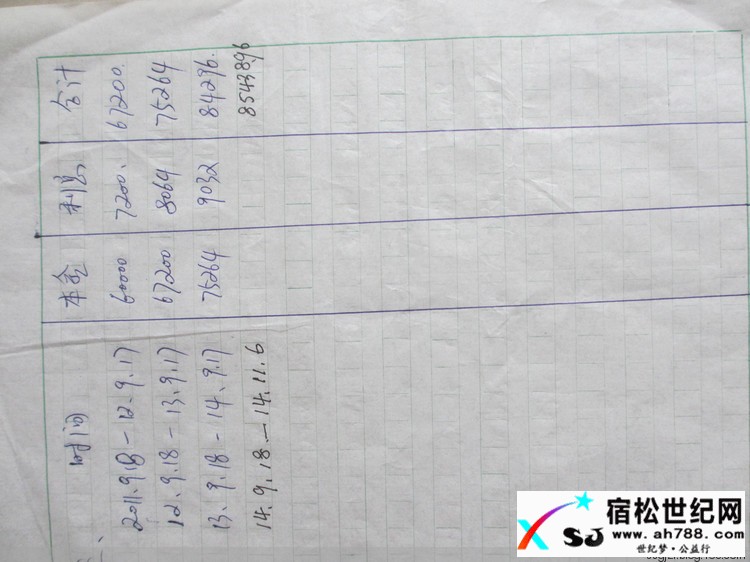 二、
时间 本金 利息 合计
2011.9.18 — 12.9.17 60000 7200. 67200.
12.9.18 — 13.9.17 67200 8064 75264
13.9.18 — 14.9.17 75264 9032 84296.
14.9.18 — 14.11.6 85438.96
SJ
宿松世纪网
www.ah788.com
世纪梦·公益行